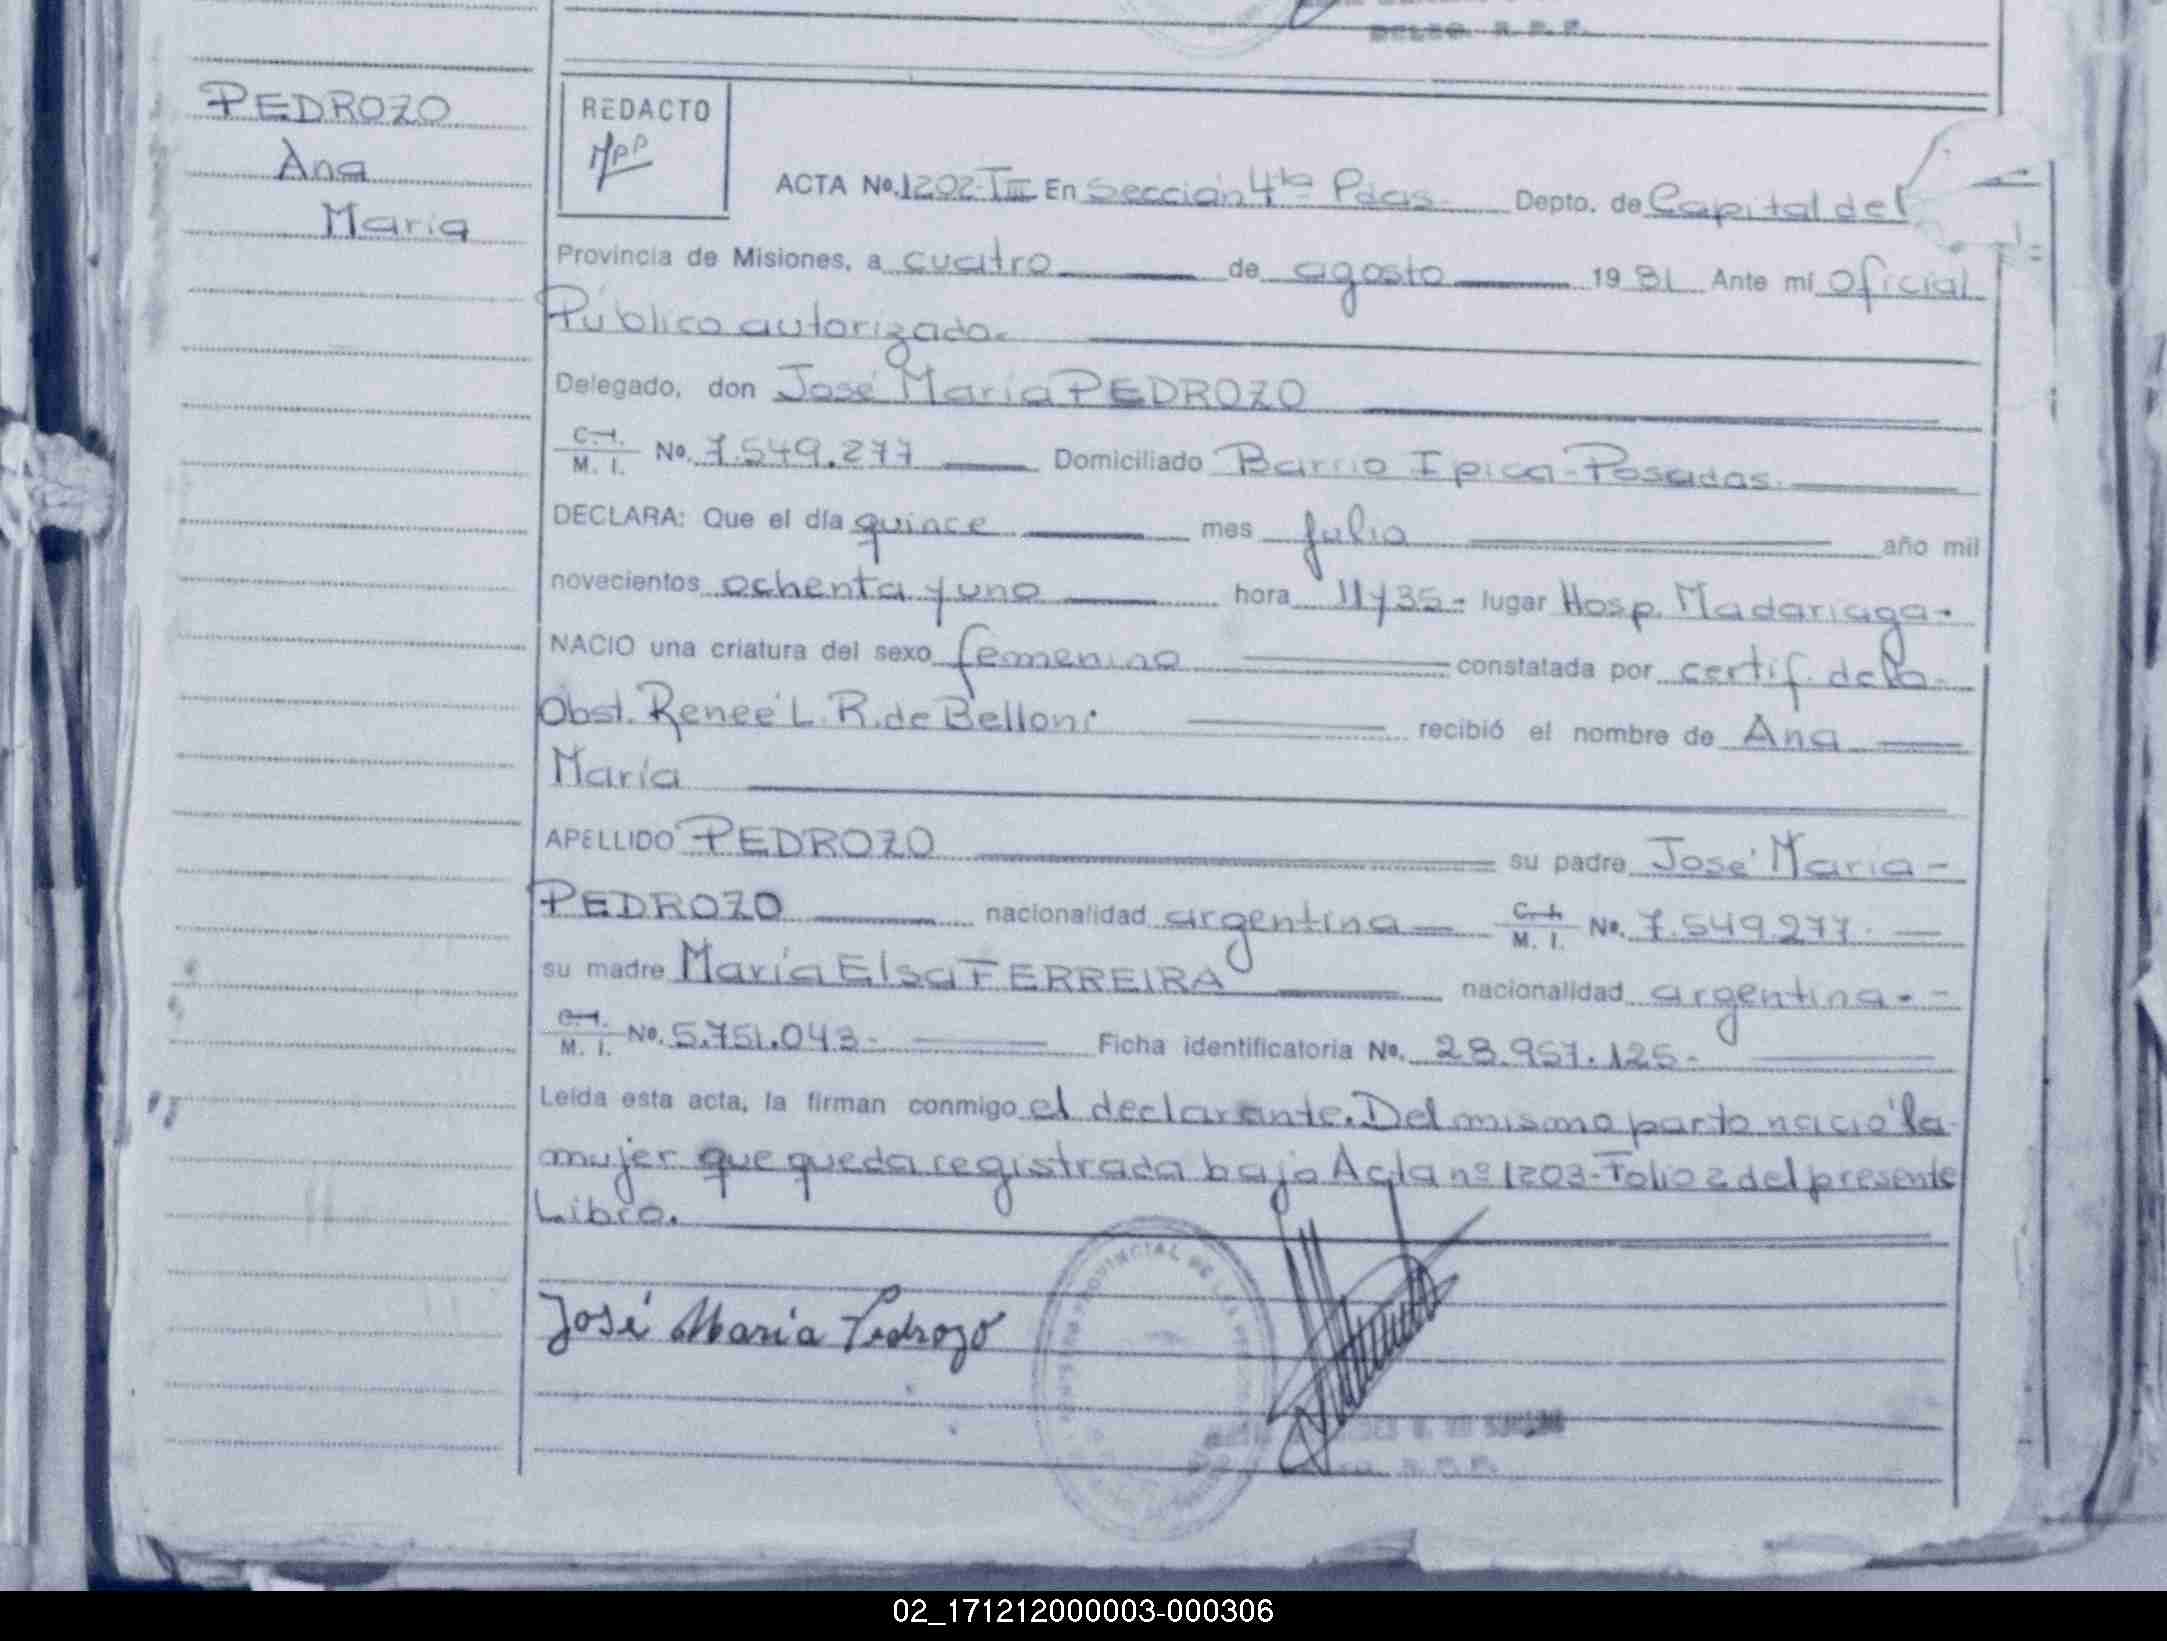 DELEG. R.P.P.
PEDROZO
Ana
María
REDACTO
MPP
ACTA No. 1202-TIII En Sección 4ta Pdas. Depto. de Capital del
Provincia de Misiones, a cuatro de agosto 1981 Ante mí Oficial
Público autorizado.
Delegado, don José María PEDROZO
C.I. M. I. No. 7.549.277 Domiciliado Barrio Ipica-Posadas.
DECLARA: Que el día quince mes julio año mil
novecientos ochenta y uno hora 11y35- lugar Hosp. Madariaga-
NACIO una criatura del sexo femenino constatada por certif. de la
Obst. Reneé L. R. de Belloni recibió el nombre de Ana
María
APELLIDO PEDROZO su padre José María-
PEDROZO nacionalidad argentina C.I. M. I. No. 7.549.277.
su madre María Elsa FERREIRA nacionalidad argentina--
C.I. M. I. No. 5.751.043- Ficha identificatoria No. 28.957.125-
Leida esta acta, la firman conmigo el declarante. Del mismo parto nació la
mujer que queda registrada bajo Acta nº 1203-Folio 2 del presente
Libro.
José María Pedrozo
PROVINCIAL DE LAS
02_171212000003-000306